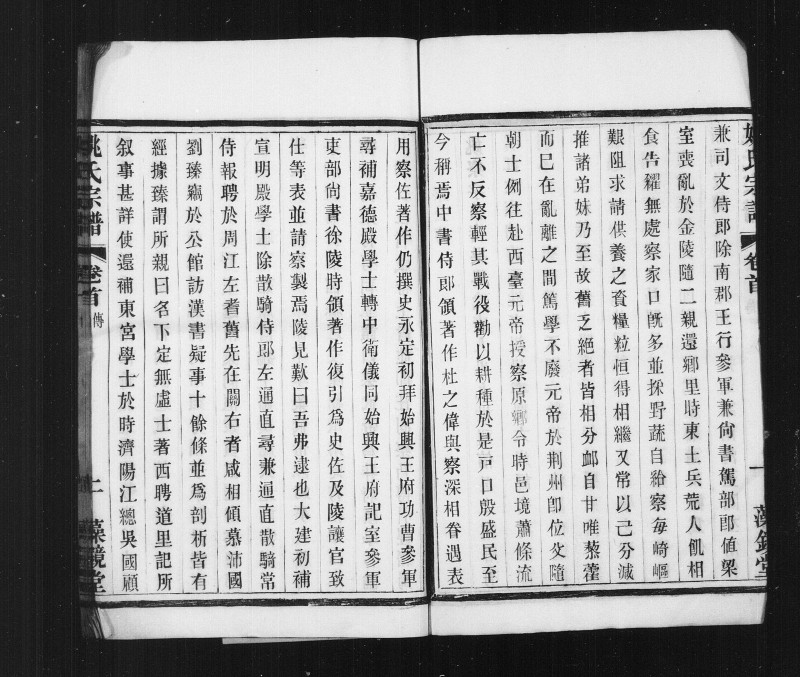 兼司文侍郎除南郡王行參軍兼尙書駕部郎値梁
室喪亂於金陵隨二親還鄉里時東土兵荒人飢相
食告糴無處察家口旣多並採野蔬自給察每崎嶇
艱阻求請供養之資糧粒恒得相繼又常以己分減
推諸弟妹乃至故舊乏絶者皆相分卹自甘唯藜藿
而已在亂離之間篤學不廢元帝於荆州卽位父隨
朝士例往赴西臺元帝授察原鄉令時邑境蕭條流
亡不反察輕其戰役勸以耕種於是戸口殷盛民至
今稱焉中書侍郎領著作杜之偉與察深相眷遇表
姚氏宗譜
卷首
一
藻鏡堂
用察佐著作仍撰史永定初拜始興王府功曹參軍
尋補嘉德殿學士轉中衛儀同始興王府記室參軍
吏部尙書徐陵時領著作復引爲史佐及陵讓官致
仕等表並請察製焉陵見歎曰吾弗逮也大建初補
宣明殿學士除散騎侍郎左通直尋兼通直散騎常
侍報聘於周江左耆舊先在關右者咸相傾慕沛國
劉臻竊於公館訪漢書疑事十餘條並爲剖析皆有
經據臻謂所親曰名下定無虛士著西聘道里記所
叙事甚詳使還補東宮學士於時濟陽江總吳國顧
姚氏宗譜
卷首
傳
二
藻鏡堂